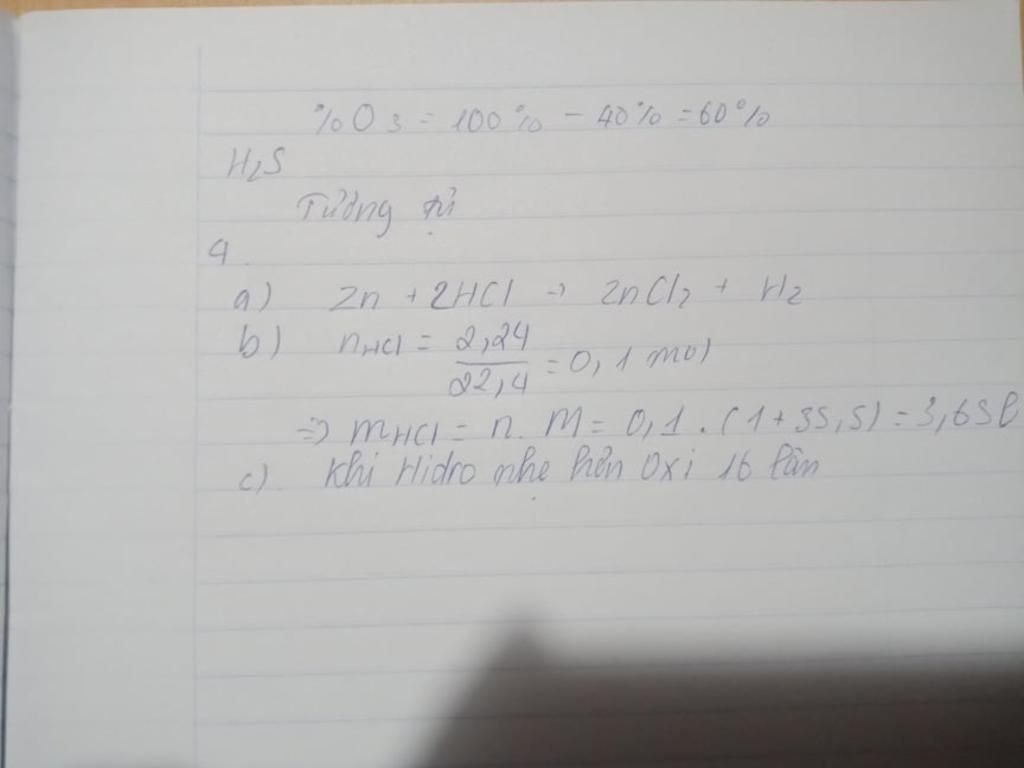 %O3 = 100% - 40% = 60%
H2S
Tương tự
4.
a) Zn + 2HCl → ZnCl2 + H2
b) nHCl = 2,24/22,4 = 0,1 mol
=> mHCl = n. M = 0,1 . (1+35,5) = 3,65g
c). Khí Hidro nhẹ hơn Oxi 16 lần